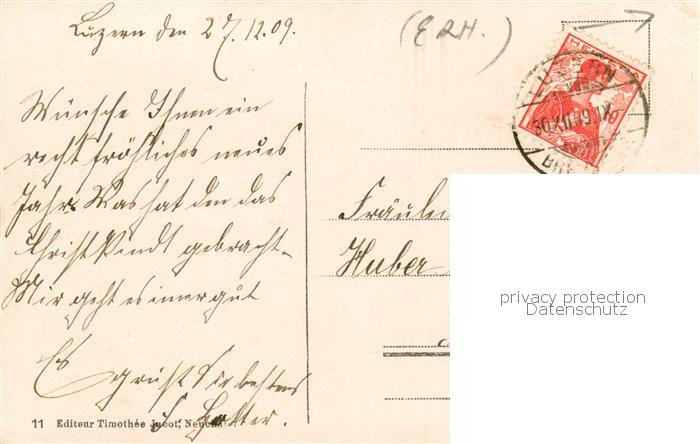 Luzern den 27.12.09.
(ERH.)
HELVETIA
LUZERN
30.XII.09.IX
BR
Wünsche Ihnen ein
recht fröhliches neues
Jahr. Was hat den das
Christkindt gebracht
Mir geht es imer gut
Es
grüßt Sie bestens
Fräulei
Huber
privacy protection
Datenschutz
11 Editeur Timothée Jacot, Neuchâ